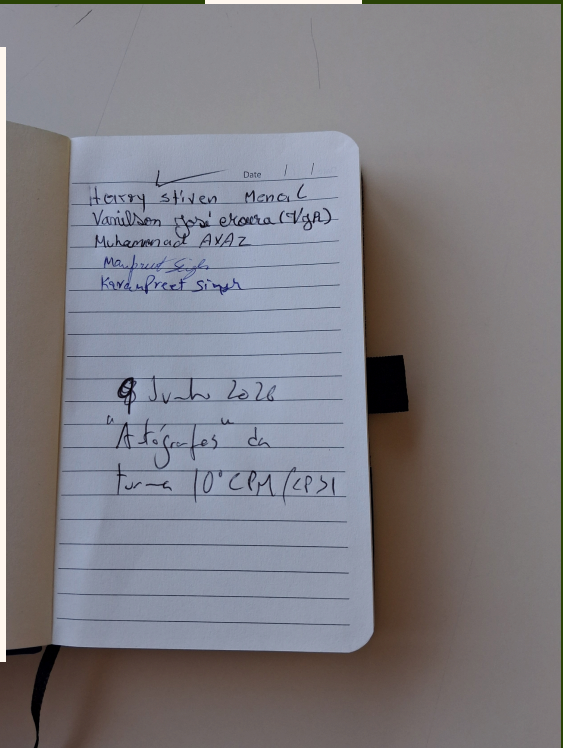 Date / /
Harry stiven Mena L
Vanilson José (VgA)
Muhammad AYAZ
Manpreet Singh
Karanpreet singh
Junho 2026
"Autógrafos" da
turma 10º CPM/CPSI